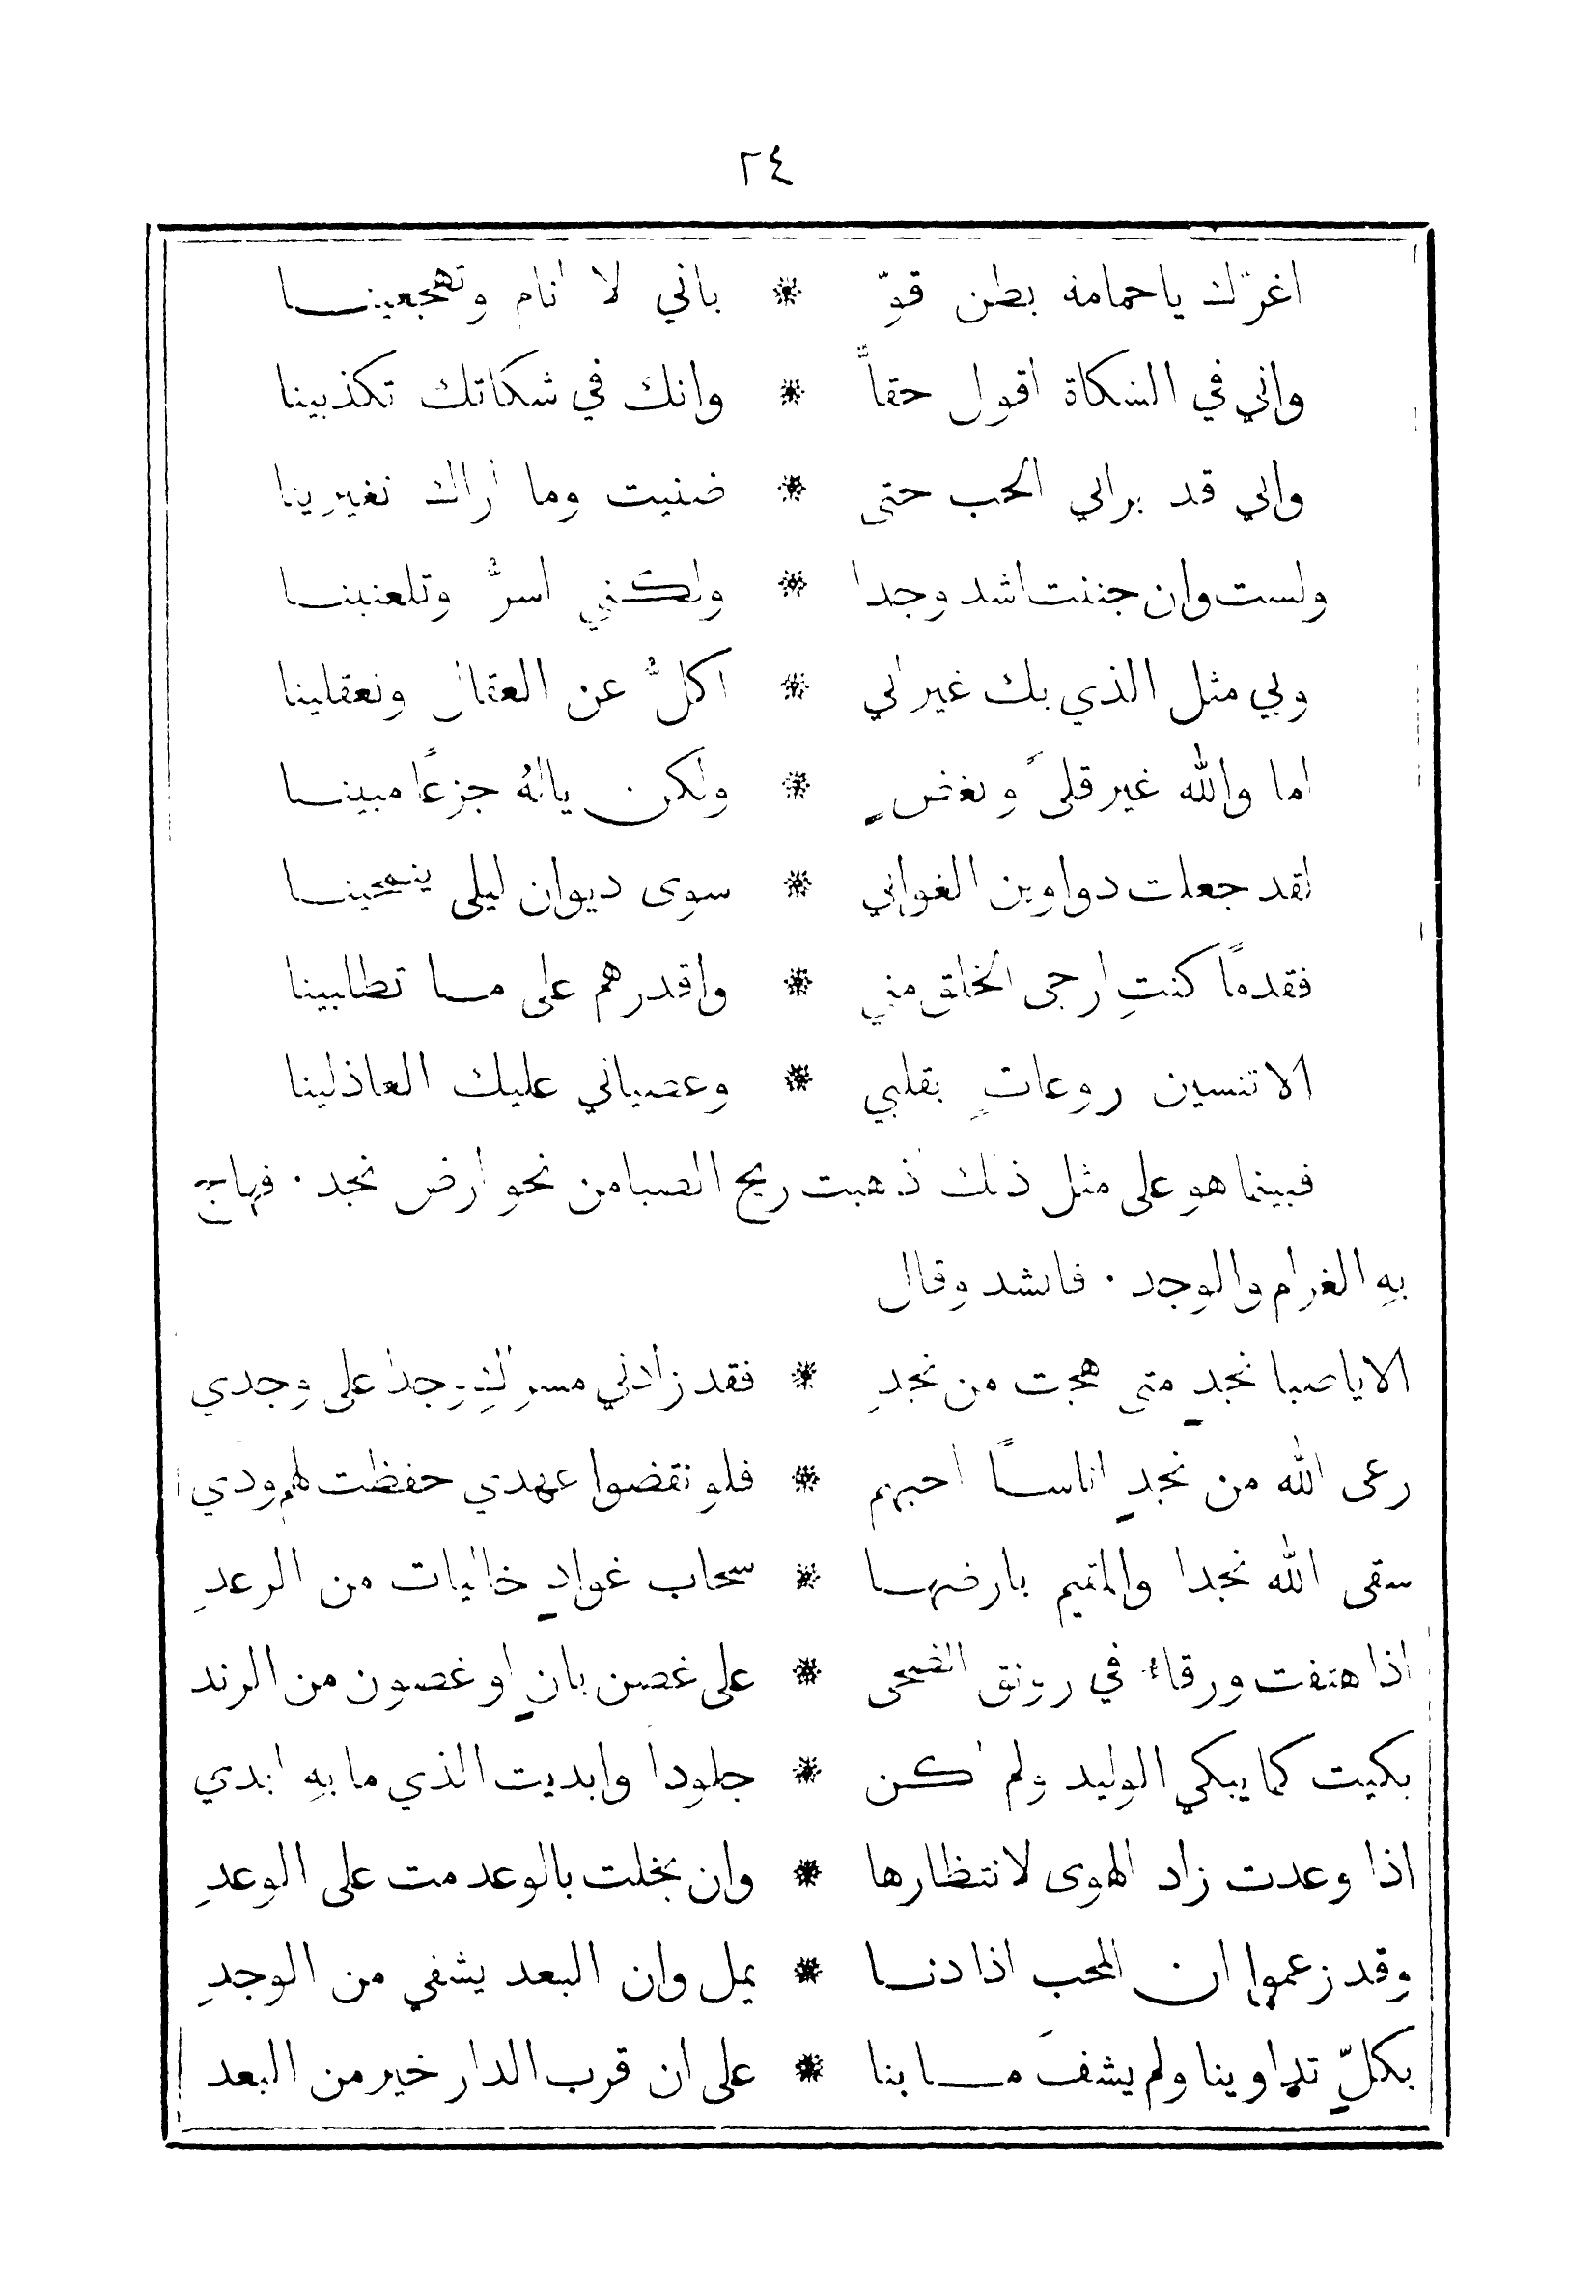 ٢٤
اغرّك ياحمامة بطن قوّ * باني لا انام وتهجعينا
واني في الشكاة اقول حقاً * وانك في شكاتك تكذبينا
واني قد براني الحب حتى * ضنيت وما اراك تغيرينا
ولست وان جننت اشد وجدا * ولكني اسرُّ وتلعنينا
وبي مثل الذي بك غير اني * اكلُّ عن العقال وتعقلينا
اما والله غير قلىً وبغضٍ * ولكن يالهُ جزعًا مبينا
لقد جعلت دواوين الغواني * سوى ديوان ليلى ينمحينا
فقدمًا كنتِ ارجى الخلق مني * واقدرهم على ما تطلبينا
الا تنسين روعاتٍ بقلبي * وعصياني عليك العاذلينا
فبينما هو على مثل ذلك اذ هبت ريح الصبا من نحو ارض نجد · فهاج
بهِ الغرام والوجد · فانشد وقال
الا ياصبا نجدٍ متى هجت من نجدِ * فقد زادني مسراكِ وجدا على وجدي
رعى الله من نجدٍ اناسًا احبهم * فلو نقضوا عهدي حفظت لهم ودي
سقى الله نجدا والمقيم بارضها * سحاب غوادٍ خاليات من الرعدِ
اذا هتفت ورقاء في رونق الضحى * على غصن بانٍ او غصون من الرند
بكيت كما يبكي الوليد ولم اكن * جلودا وابديت الذي ما بهِ ابدي
اذا وعدت زاد الهوى لانتظارها * وان بخلت بالوعد مت على الوعدِ
وقد زعموا ان المحب اذا دنا * يمل وان البعد يشفي من الوجدِ
بكلٍّ تداوينا ولم يشفَ ما بنا * على ان قرب الدار خير من البعد